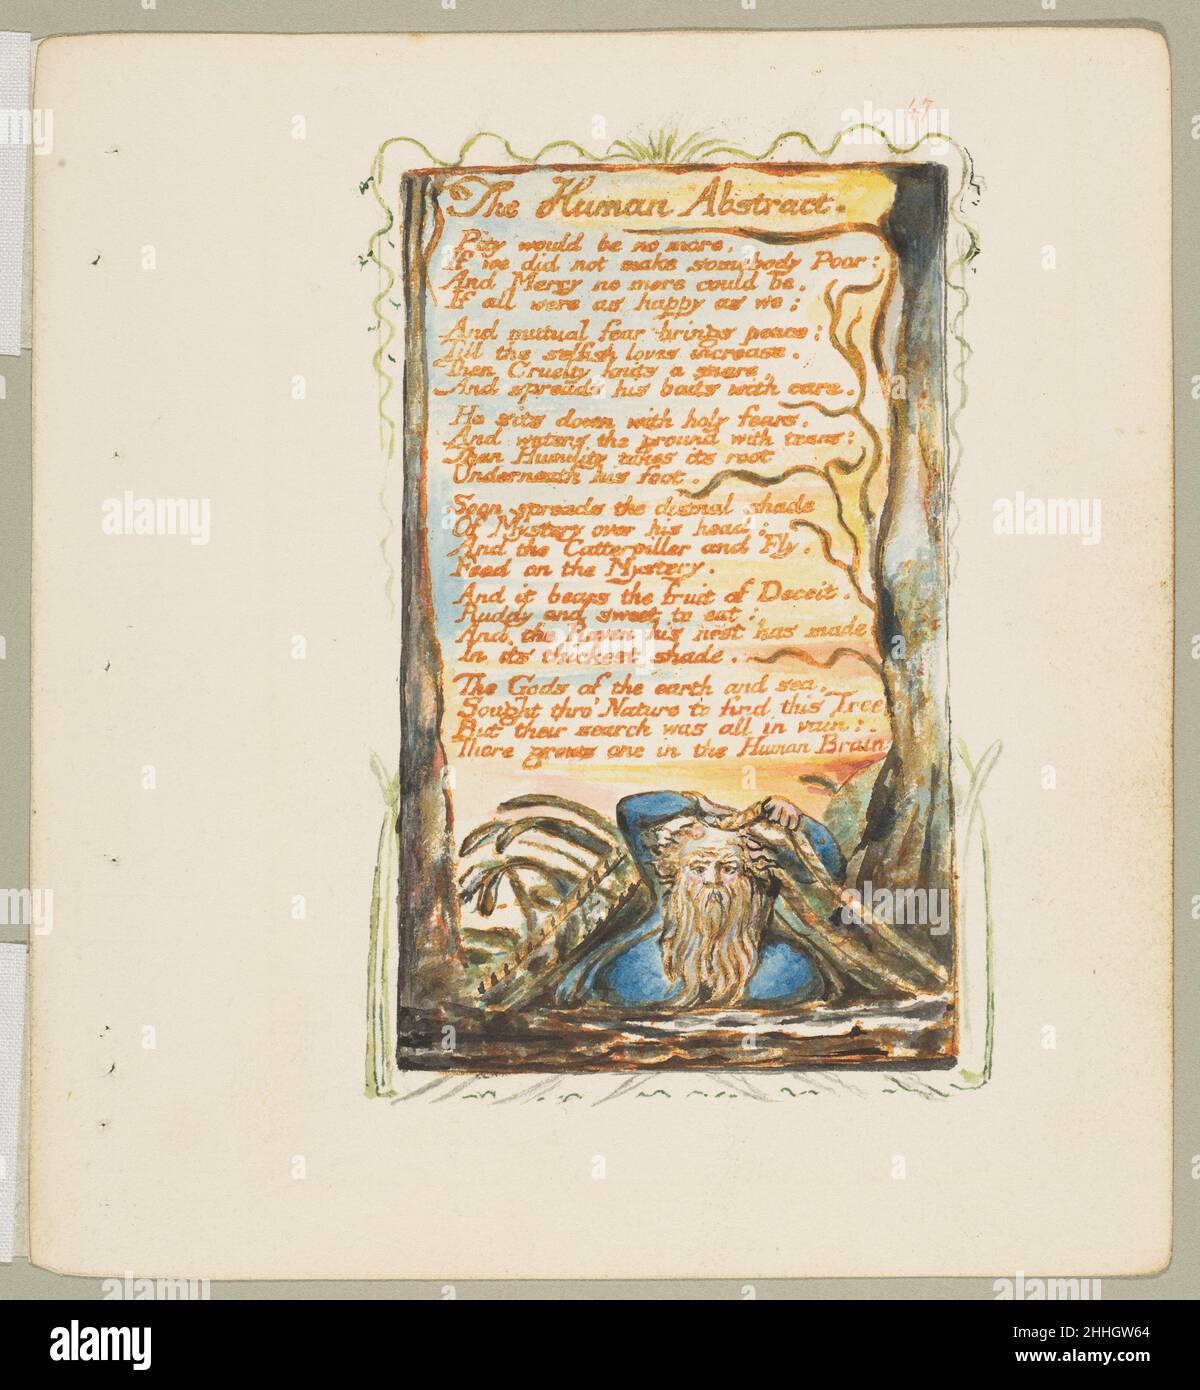 47
The Human Abstract.
Pity would be no more,
If we did not make somebody Poor:
And Mercy no more could be,
If all were as happy as we;
And mutual fear brings peace:
Till the selfish loves increase.
Then Cruelty knits a snare,
And spreads his baits with care.
He sits down with holy fears,
And waters the ground with tears:
Then Humility takes its root
Underneath his foot.
Soon spreads the dismal shade
Of Mystery over his head;
And the Catterpiller and Fly,
Feed on the Mystery.
And it bears the fruit of Deceit,
Ruddy and sweet to eat;
And the Raven his nest has made
In its thickest shade.
The Gods of the earth and sea,
Sought thro' Nature to find this Tree
But their search was all in vain:
There grows one in the Human Brain
alamy
Image ID: 2HHGW64
www.alamy.com